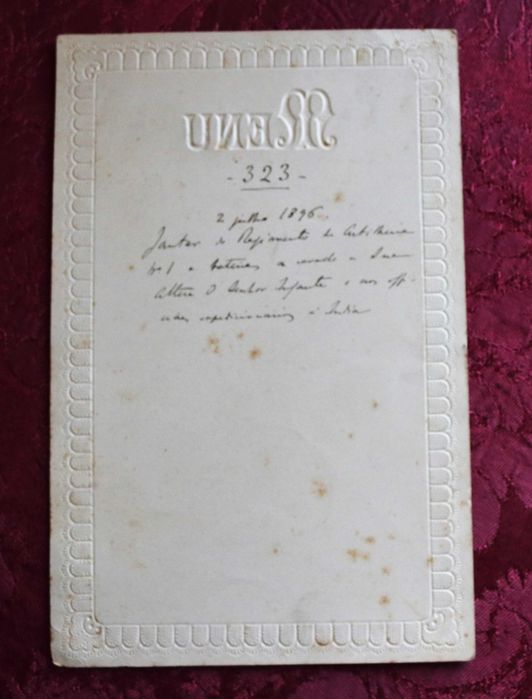 MENU
- 323 -
2 julho 1896
Jantar do Regimento de Artilharia
Nº 1 a
Alteza O Senhor Infante e aos offi-
ciaes expedicionarios á India